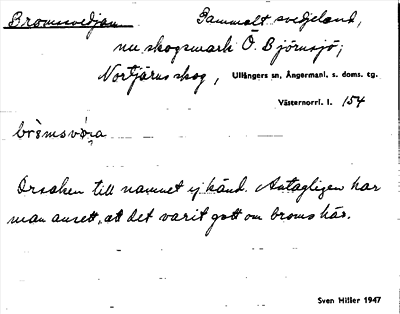 Bromsvedjan Gammalt svedjeland,
nu skogsmark Ö. Björnsjö;
Nortjärns skog, Ullångers sn, Ångermanl. s. doms. tg.
Västernorrl. l. 154
Orsaken till namnet ej känd. Antagligen har
man ansett, att det varit gott om broms här.
Sven Hitler 1947